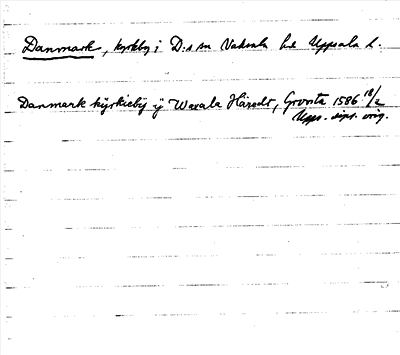 Danmark, kyrkby i D:s sn Vaksala hd Uppsala l.
Danmark kyrkieby ij Waxala Häredt, Grvsta 1586 18/2
Upps. dipl. orig.